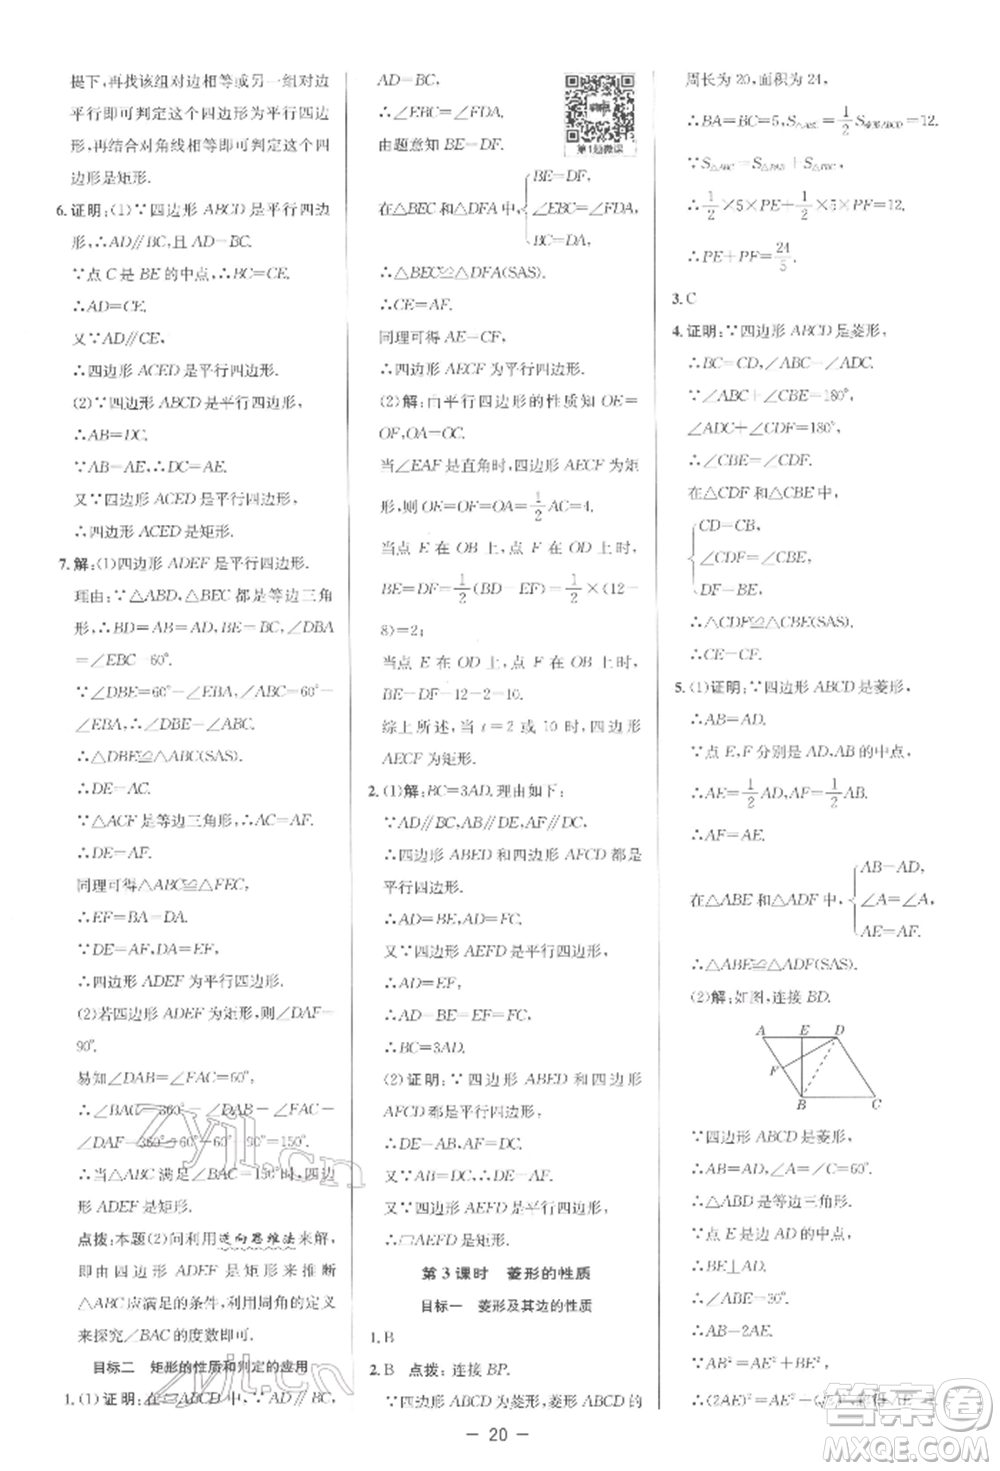 提下,再找该组对边相等或另一组对边
平行即可判定这个四边形为平行四边
形,再结合对角线相等即可判定这个四
边形是矩形.
6.证明:(1)∵四边形 ABCD是平行四边
形,∴AD∥BC,且 AD=BC.
∵点 C 是 BE 的中点,∴BC=CE,
∴AD=CE.
又∵AD∥CE,
∴四边形 ACED 是平行四边形.
(2)∵四边形 ABCD 是平行四边形,
∴AB=DC.
∵AB=AE,∴DC=AE.
又∵四边形 ACED 是平行四边形,
∴四边形 ACED 是矩形.
7.解:(1)四边形 ADEF 是平行四边形.
理由:∵△ABD,△BEC 都是等边三角
形,∴BD=AB,BE=BC,∠DBA
=∠EBC=60°.
∵∠DBE=60°-∠EBA,∠ABC=
60°-∠EBA,∴∠DBE=∠ABC.
∴△DBE≌△ABC(SAS).
∴DE=AC.
∵△ACF 是等边三角形,∴AC=AF.
∴DE=AF.
同理可得△ABC≌△FEC,
∴EF=BA=DA.
∵DE=AF,DA=EF,
∴四边形 ADEF 为平行四边形.
(2)若四边形 ADEF 为矩形,则∠DAF=
90°.
易知∠DAB=∠FAC=60°,
∴∠BAC=360°-∠DAB-∠FAC-
∠DAF=360°-60°-60°-90°=150°.
∴当△ABC 满足∠BAC=150°时,四边
形 ADEF 是矩形.
点拨:本题(2)问利用逆向思维法来解,
即由四边形 ADEF 是矩形来推导
△ABC应满足的条件,利用周角的定义
来探究∠BAC 的度数即可.
目标二 矩形的性质和判定的应用
1.(1)证明:在▱ABCD 中,AD∥BC,
AD=BC,
∴∠EBC=∠FDA.
由题意知 BE=DF.
第1题微课
在△BEC 和△DFA 中,
BE=DF,
∠EBC=∠FDA,
BC=DA,
∴△BEC≌△DFA(SAS).
∴CE=AF.
同理可得 AE=CF,
∴四边形 AECF 为平行四边形.
(2)解:由平行四边形的性质知 OE=
OF,OA=OC.
当∠EAF 是直角时,四边形 AECF 为矩
形,∴OE=OF=OA=1/2 AC=4.
当点 E 在 OB 上,点 F 在 OD 上时,
BE=DF=1/2(BD-EF)=1/2×(12-
8)=2;
当点 E 在 OD 上,点 F 在 OB 上时,
BE=DF=12-2=10.
综上所述,当 t=2 或 10 时,四边形
AECF 为矩形.
2.(1)解:BC=3AD.理由如下:
∵AD∥BC,AB∥DE,AF∥DC,
∴四边形 ABED 和四边形 AFCD 都是
平行四边形.
∴AD=BE,AD=FC.
又∵四边形 AEFD 是平行四边形,
∴AD=EF.
∴AD=BE=EF=FC.
∴BC=3AD.
(2)证明:∵四边形 ABED 和四边形
AFCD 都是平行四边形,
∴DE=AB,AF=DC.
∵AB=DC,∴DE=AF.
又∵四边形 AEFD 是平行四边形,
∴▱AEFD 是矩形.
第 3 课时 菱形的性质
目标一 菱形及其边的性质
1.B
2.B 点拨:连接 BP.
∵四边形 ABCD 为菱形,菱形 ABCD 的
周长为 20,面积为 24,
∴BA=BC=5,S△ABC=1/2 S菱形ABCD=12.
又∵S△ABC=S△PAB+S△PBC,
∴1/2×5×PE+1/2×5×PF=12,
∴PE+PF=24/5.
3.C
4.证明:∵四边形 ABCD 是菱形,
∴BC=CD,∠ABC=∠ADC.
∵∠ABC+∠CBE=180°,
∠ADC+∠CDF=180°,
∴∠CBE=∠CDF.
在△CDF 和△CBE 中,
CD=CB,
∠CDF=∠CBE,
DF=BE,
∴△CDF≌△CBE(SAS).
∴CE=CF.
5.(1)证明:∵四边形 ABCD 是菱形,
∴AB=AD.
∵点 E,F 分别是 AD,AB 的中点,
∴AE=1/2 AD,AF=1/2 AB.
∴AF=AE.
在△ABE 和△ADF 中,
AB=AD,
∠A=∠A,
AE=AF,
∴△ABE≌△ADF(SAS).
(2)解:如图,连接 BD.
A E D
F
B C
∵四边形 ABCD 是菱形,
∴AB=AD,∠A=∠C=60°.
∴△ABD 是等边三角形.
∵点 E 是边 AD 的中点,
∴BE⊥AD.
∴∠ABE=30°.
∴AB=2AE.
∵AB²=AE²+BE²,
— 20 —
zyjl.cn
zyjl.cn
答案圈
MXQE.COM